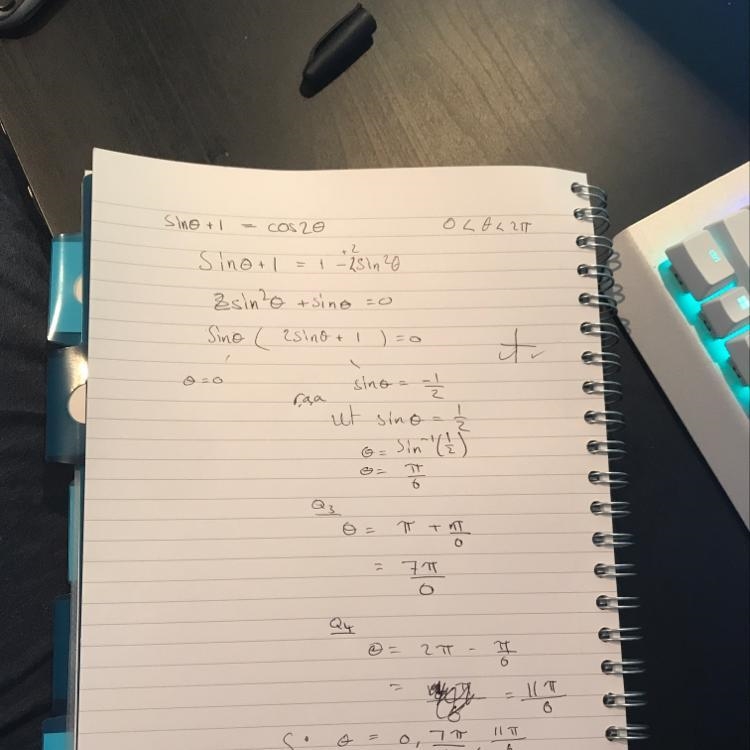 sinθ + 1 = cos2θ 0 < θ < 2π
+2
sinθ + 1 = 1 - 2sin²θ
2sin²θ + sinθ = 0
sinθ ( 2sinθ + 1 ) = 0
θ = 0 sinθ = -1/2
raa
let sinθ = 1/2
θ = sin⁻¹(1/2)
θ = π/6
Q3
θ = π + π/6
= 7π/6
Q4
θ = 2π - π/6
= = 11π/6
θ = 0, 7π, 11π